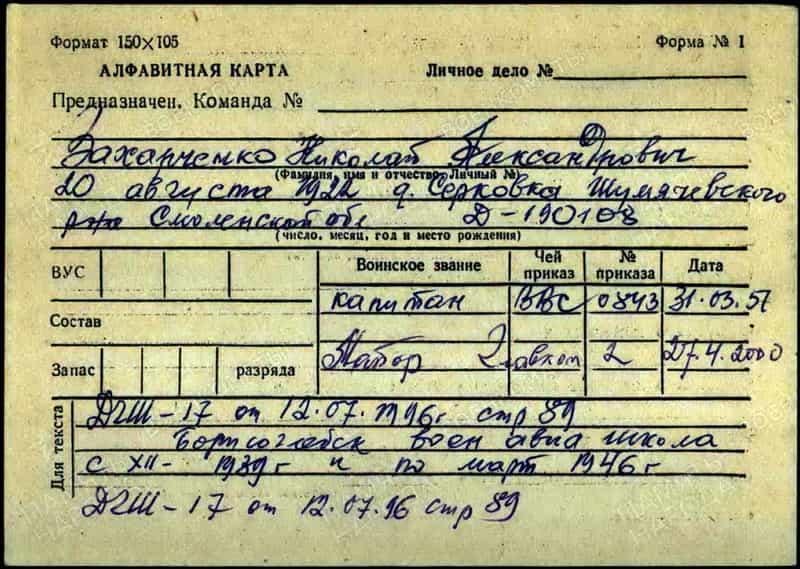 Формат 150×105 Форма № 1
АЛФАВИТНАЯ КАРТА Личное дело №
Предназначен. Команда №
Захарченко Николай Александрович
(Фамилия, имя и отчество, Личный №)
20 августа 1922 д. Серковка Шумячевского
р-на Смоленской обл Д-190108
(число, месяц, год и место рождения)
ВУС Воинское звание Чей приказ № приказа Дата
капитан ВВС 0843 31.03.51
Состав
Майор Главком 2 27.4.2000
Запас разряда
Для текста
ДГШ-17 от 12.07.1996г стр 89
Борисоглебск воен авиа школа
с XII- 1939г и по март 1946г
ДГШ-17 от 12.07.96 стр 89